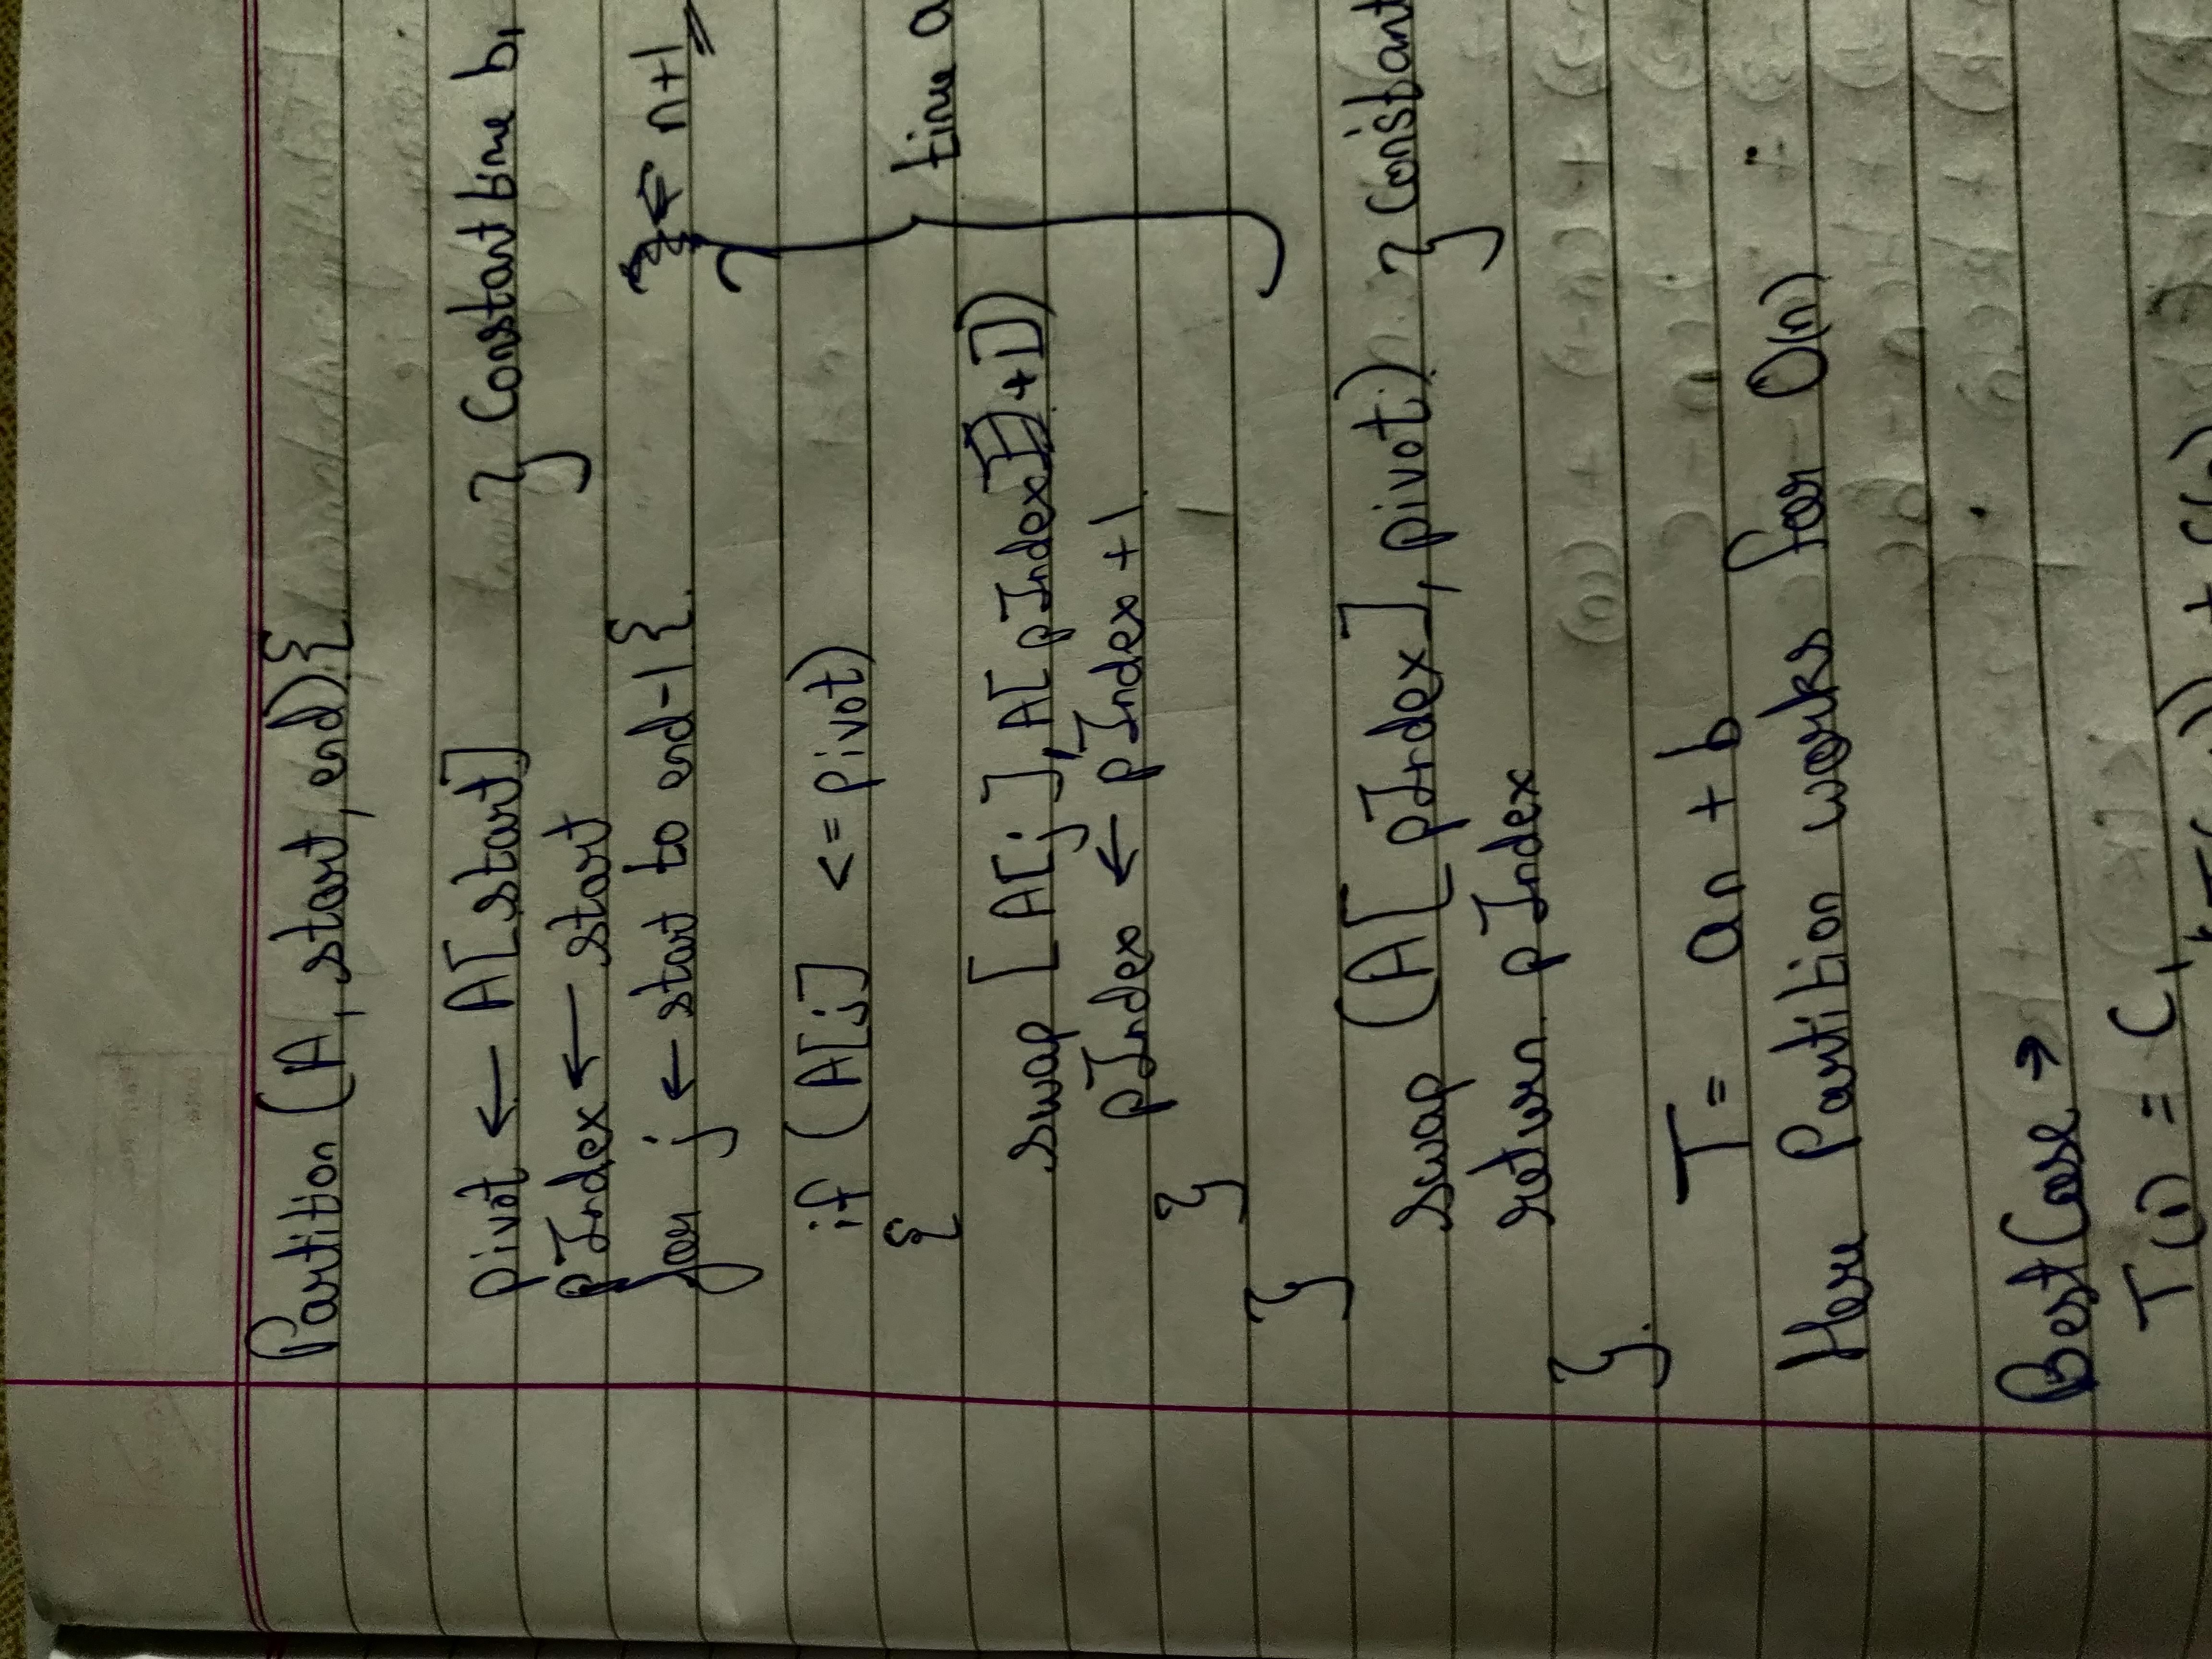 Partition (A, start, end) {
pivot ← A[start] } Constant time b1
pIndex ← start
for j ← start to end-1 {. ← n+1
if (A[j] <= pivot)
{
swap [A[j], A[pIndex+1]) } time a
pIndex ← pIndex +1.
}
}
swap (A[pIndex], pivot) } Constant
return pIndex
}.
T = an + b
Here Partition works for O(n)
Best Case →
T(1) = C1